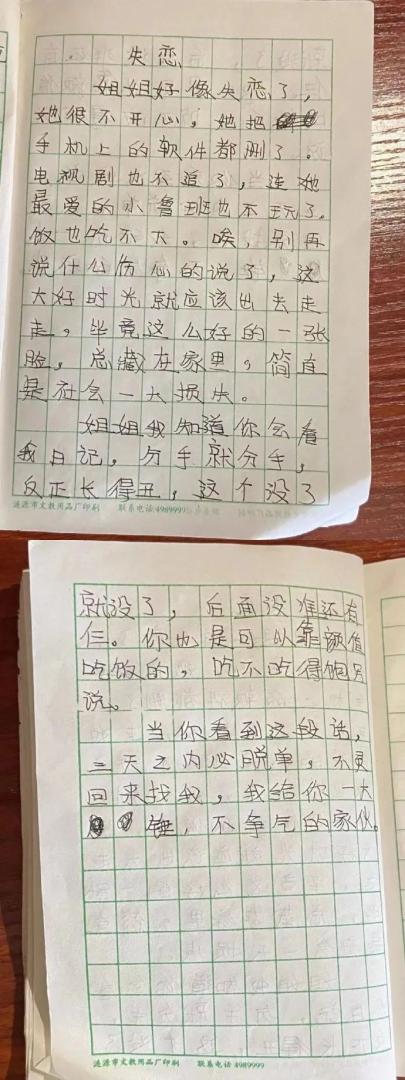 失恋
姐姐好像失恋了,
她很不开心,她把
手机上的软件都删了。
电视剧也不追了,连她
最爱的小鲁班也不玩了。
饭也吃不大。唉,别再
说什么伤心的说了,这
大好时光就应该出去走
走,毕竟这么好的一张
脸,总藏在家里,简直
是社会一大损失。
姐姐我知道你会看
我日记,分手就分手,
反正长得丑,这个没了
涟源市文教用品厂印刷 联系电话4989999
就没了,后面没准还有
仨。你也是可以靠颜值
吃饭的,吃不吃得饱另
说。
当你看到这段话,
三天之内必脱单,不灵
回来找我,我给你一大
锤,不争气的家伙。
涟源市文教用品厂印刷 联系电话4989999